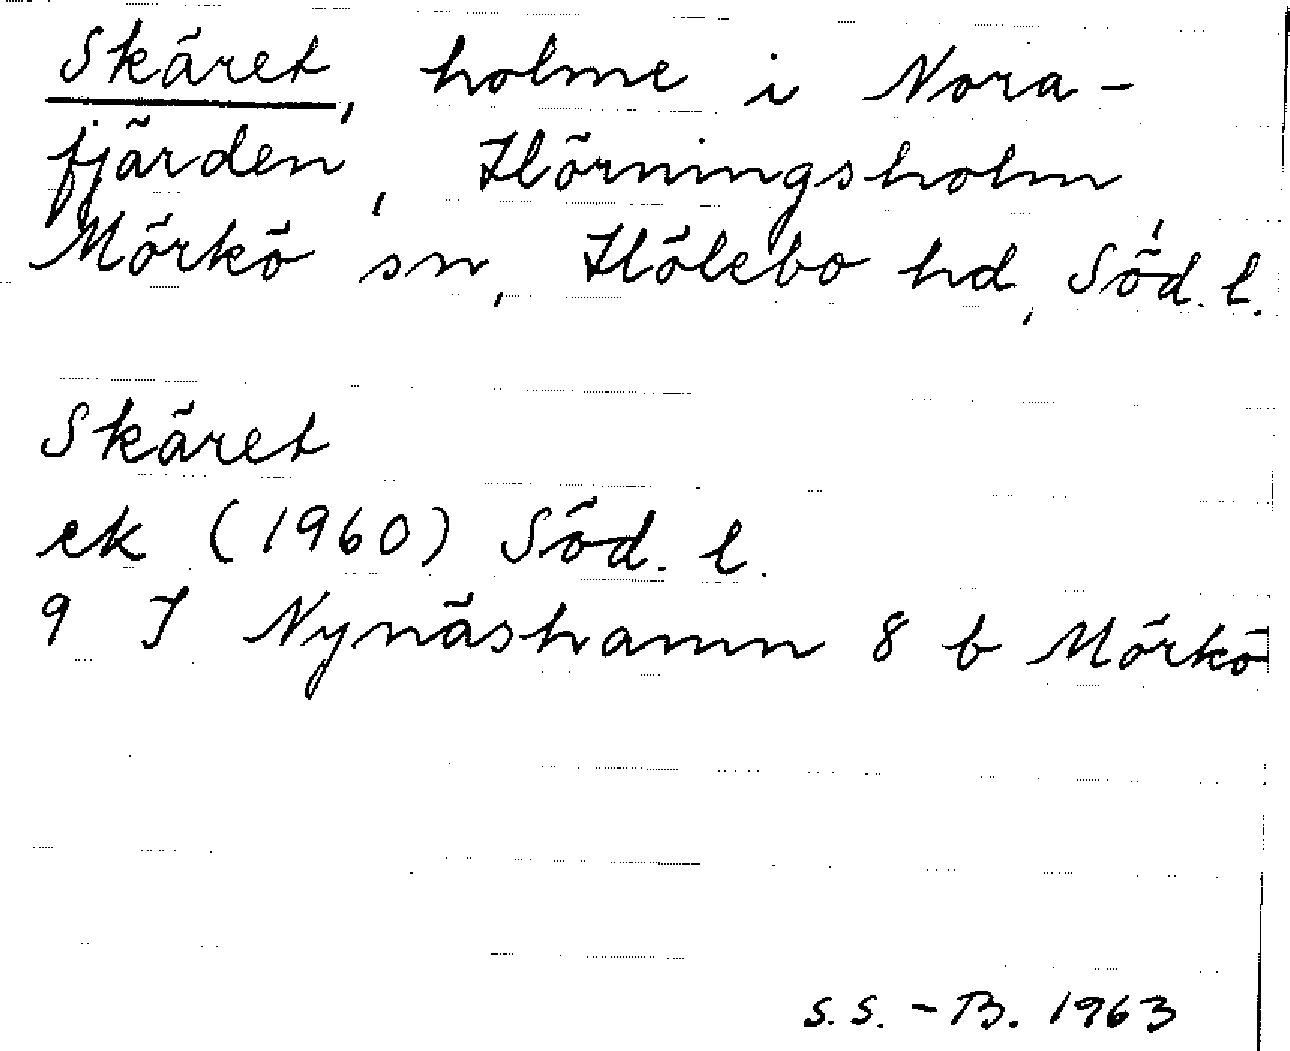 Skäret, holme i Nora-
fjärden, Hörningsholm,
Mörkö sn, Hölebo hd, Söd. l.
Skäret
ek (1960) Söd. l.
9 I Nynäshamn 8 b Mörkö
S.S.-B. 1963